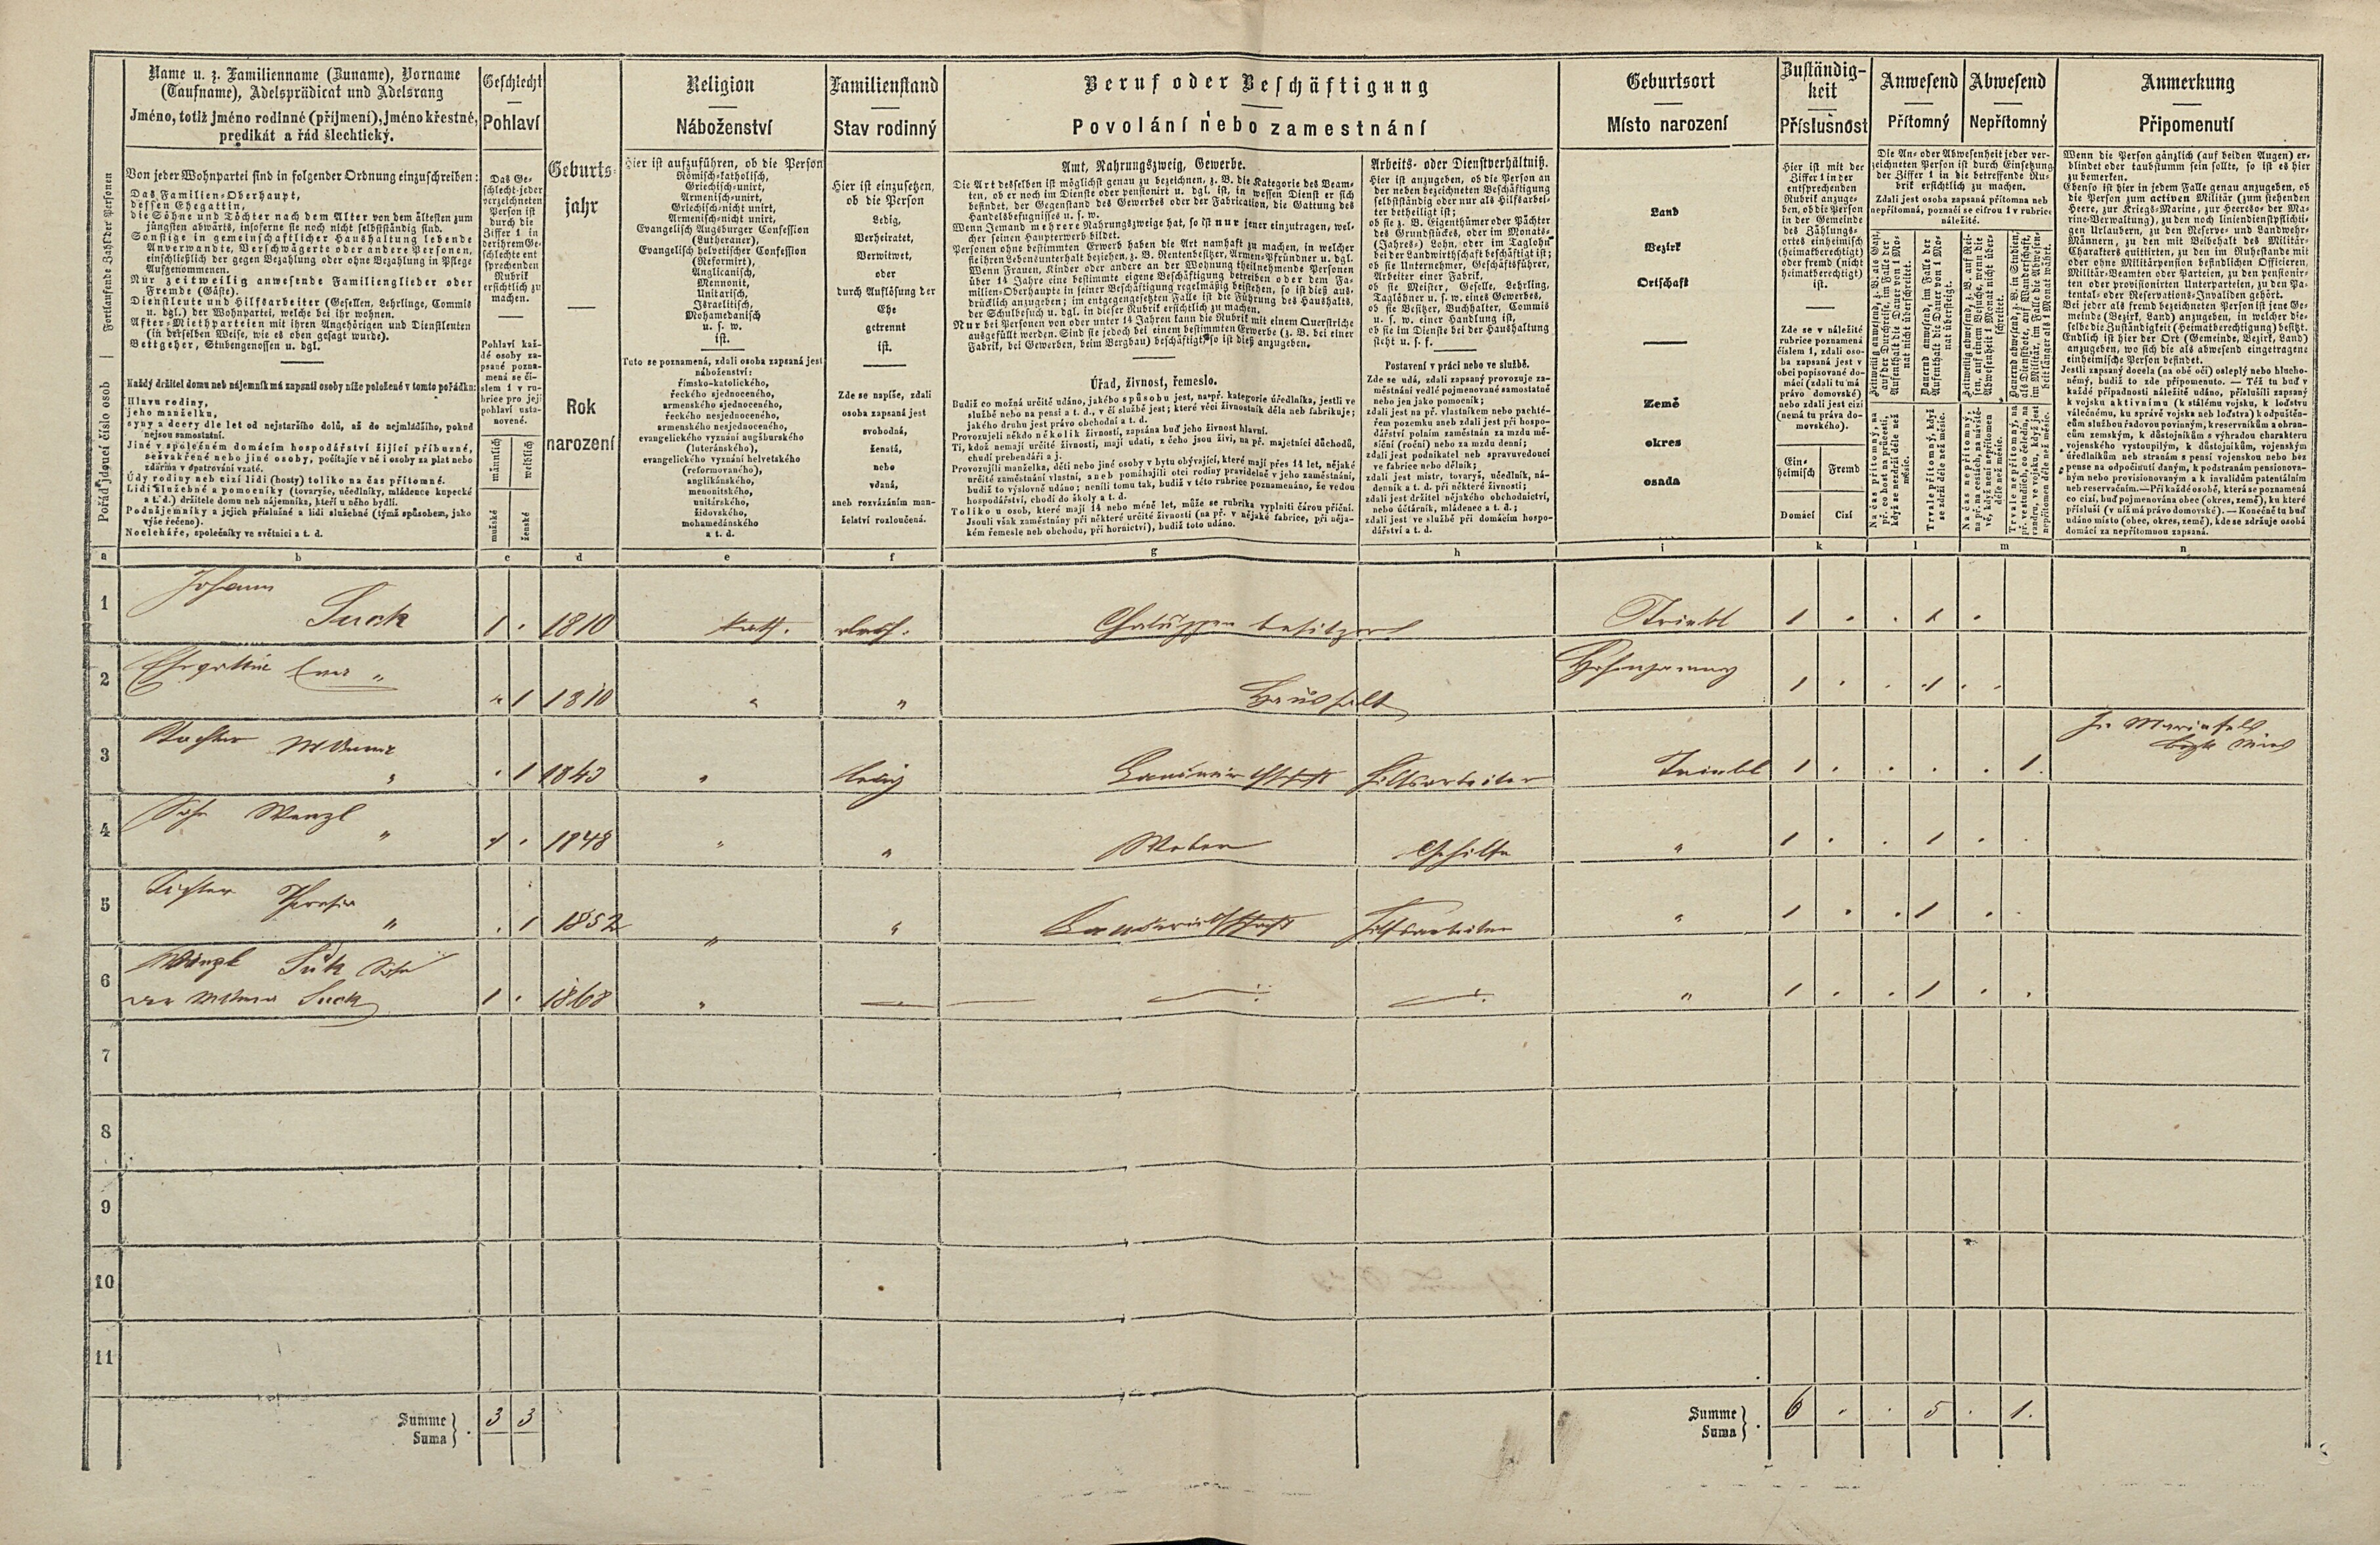 Name u. z. Familienname (Zuname), Vorname
(Taufname), Adelsprädicat und Adelsrang
Jméno, totiž jméno rodinné (příjmení), jméno křestné,
predikát a řád šlechtický.
Von jeder Wohnpartei sind in folgender Ordnung einzuschreiben:
Das Familien-Oberhaupt,
dessen Ehegattin,
die Söhne und Töchter nach dem Alter von dem ältesten zum
jüngsten abwärts, insoferne sie noch nicht selbstständig sind.
Sonstige in gemeinschaftlicher Haushaltung lebende
Anverwandte, Verschwägerte oder andere Personen,
einschließlich der gegen Bezahlung oder ohne Bezahlung in Pflege
Aufgenommenen.
Nur zeitweilig anwesende Familienglieder oder
Fremde (Gäste).
Dienstleute und Hilfsarbeiter (Gesellen, Lehrlinge, Commis
u. dgl.) der Wohnpartei, welche bei ihr wohnen.
After-Miethparteien mit ihren Angehörigen und Dienstleuten
(in derselben Weise, wie es oben gesagt wurde).
Bettgeher, Stubengenossen u. dgl.
Každý držitel domu neb nájemník má zapsati osoby níže položené v tomto pořádku:
Hlavu rodiny,
jeho manželku,
syny a dcery dle let od nejstaršího dolů, až do nejmladšího, pokud
nejsou samostatni.
Jiné v společném domácím hospodářství žijící příbuzné,
sešvakřené nebo jiné osoby, počítajíc v ně i osoby za plat nebo
zdarma v opatrování vzaté.
Údy rodiny neb cizí lidi (hosty) toliko na čas přítomné.
Lidi služebné a pomocníky (tovaryše, učedlníky, mládence kupecké
a t. d.) držitele domu neb nájemníka, kteří u něho bydlí.
Podnájemníky a jejich příslušné a lidi služebné (týmž spůsobem, jako
výše řečeno).
Nocleháře, společníky ve světnici a t. d.
Fortlaufende Zahl der Personen
Pořád jdoucí číslo osob
Geschlecht
Pohlaví
Das Ge-
schlecht jeder
verzeichneten
Person ist
durch die
Ziffer 1 in
der ihrem Ge-
schlechte ent
sprechenden
Rubrik
ersichtlich zu
machen.
Pohlaví kaž-
dé osoby za-
psané pozna-
mená se čí-
slem 1 v ru-
brice pro její
pohlaví usta-
novené.
männlich
weiblich
mužské
ženské
Geburts-
jahr
Rok
narození
Religion
Náboženství
Hier ist aufzuführen, ob die Person
Römisch-katholisch,
Griechisch-unirt,
Armenisch-unirt,
Griechisch-nicht unirt,
Armenisch-nicht unirt,
Evangelisch Augsburger Confession
(Lutheraner),
Evangelisch helvetischer Confession
(Reformirt),
Anglicanisch,
Mennonit,
Unitarisch,
Israelitisch,
Mohamedanisch
u. s. w.
ist.
Tuto se poznamená, zdali osoba zapsaná jest
náboženství:
římsko-katolického,
řeckého sjednoceného,
armenského sjednoceného,
řeckého nesjednoceného,
armenského nesjednoceného,
evangelického vyznání augšburského
(luteránského),
evangelického vyznání helvetského
(reformovaného),
anglikánského,
menonitského,
unitářského,
židovského,
mohamedánského
a t. d.
Familienstand
Stav rodinný
Hier ist einzusetzen,
ob die Person
Ledig,
Verheiratet,
Verwitwet,
oder
durch Auflösung der
Ehe
getrennt
ist.
Zde se napíše, zdali
osoba zapsaná jest
svobodná,
ženatá,
nebo
vdaná,
aneb rozvázáním man-
želství rozloučená.
Beruf oder Beschäftigung
Povolání nebo zamestnání
Amt, Nahrungszweig, Gewerbe.
Die Art desselben ist möglichst genau zu bezeichnen, z. B. die Kategorie des Beam-
ten, ob er noch im Dienste oder pensionirt u. dgl. ist, in wessen Dienst er sich
befindet, der Gegenstand des Gewerbes oder der Fabrication, die Gattung des
Handelsbefugnisses u. s. w.
Wenn Jemand mehrere Nahrungszweige hat, so ist nur jener einzutragen, wel-
cher seinen Haupterwerb bildet.
Personen ohne bestimmten Erwerb haben die Art namhaft zu machen, in welcher
sie ihren Lebensunterhalt beziehen, z. B. Rentenbesitzer, Armen-Pfründner u. dgl.
Wenn Frauen, Kinder oder andere an der Wohnung theilnehmende Personen
über 14 Jahre eine bestimmte eigene Beschäftigung betreiben oder dem Fa-
milien-Oberhaupte in seiner Beschäftigung regelmäßig beistehen, so ist dieß aus-
drücklich anzugeben; im entgegengesetzten Falle ist die Führung des Haushalts,
der Schulbesuch u. dgl. in dieser Rubrik ersichtlich zu machen.
Nur bei Personen von oder unter 14 Jahren kann die Rubrik mit einem Querstriche
ausgefüllt werden. Sind sie jedoch bei einem bestimmten Erwerbe (z. B. bei einer
Fabrik, bei Gewerben, beim Bergbau) beschäftigt, so ist dieß anzugeben.
Úřad, živnost, řemeslo.
Budiž co možná určitě udáno, jakého spůsobu jest, např. kategorie úředlníka, jestli ve
službě nebo na pensi a t. d., v čí službě jest; které věci živnostník dělá neb fabrikuje;
jakého druhu jest právo obchodní a t. d.
Provozuje-li někdo několik živností, zapsána buď jeho živnost hlavní.
Ti, kdož nemají určité živnosti, mají udati, z čeho jsou živi, na př. majetníci důchodů,
chudí prebendáři a j.
Provozují-li manželka, děti nebo jiné osoby v bytu obývající, které mají přes 14 let, nějaké
určité zaměstnání vlastní, aneb pomáhají-li otci rodiny pravidelně v jeho zaměstnání,
budiž to výslovně udáno; není-li tomu tak, budiž v této rubrice poznamenáno, že vedou
hospodářství, chodí do školy a t. d.
Toliko u osob, které mají 14 nebo méně let, může se rubrika vyplniti čárou příční.
Jsou-li však zaměstnány při některé určité živnosti (na př. v nějaké fabrice, při něja-
kém řemesle neb obchodu, při hornictví), budiž toto udáno.
Arbeits- oder Dienstverhältniß.
Hier ist anzugeben, ob die Person an
der neben bezeichneten Beschäftigung
selbstständig oder nur als Hilfsarbei-
ter betheiligt ist;
ob sie z. B. Eigenthümer oder Pächter
des Grundstückes, oder im Monats-
(Jahres-) Lohn, oder im Taglohn
bei der Landwirthschaft beschäftigt ist;
ob sie Unternehmer, Geschäftsführer,
Arbeiter einer Fabrik,
ob sie Meister, Geselle, Lehrling,
Taglöhner u. s. w. eines Gewerbes,
ob sie Besitzer, Buchhalter, Commis
u. s. w. einer Handlung ist,
ob sie im Dienste bei der Haushaltung
steht u. s. f.
Postavení v práci nebo ve službě.
Zde se udá, zdali zapsaný provozuje za-
městnání vedlé pojmenované samostatně
nebo jen jako pomocník;
zdali jest na př. vlastníkem nebo pachté-
řem pozemku aneb zdali jest při hospo-
dářství polním zaměstnán za mzdu mě-
síční (roční) nebo za mzdu denní;
zdali jest podnikatel neb spravuvedoucí
ve fabrice nebo dělník;
zdali jest mistr, tovaryš, učedlník, ná-
denník a t. d. při některé živnosti;
zdali jest držitel nějakého obchodnictví,
nebo účtárník, mládenec a t. d.;
zdali jest ve službě při domácím hospo-
dářství a t. d.
Geburtsort
Místo narození
Land
Bezirk
Ortschaft
Země
okres
osada
Zuständig-
keit
Příslušnost
Hier ist mit der
Ziffer 1 in der
entsprechenden
Rubrik anzuge-
ben, ob die Person
in der Gemeinde
des Zählungs-
ortes einheimisch
(heimatberechtigt)
oder fremd (nicht
heimatberechtigt)
ist.
Zde se v náležité
rubrice poznamená
číslem 1, zdali oso-
ba zapsaná jest v
obci popisované do-
mácí (zdali tu má
právo domovské)
nebo zdali jest cizí
(nemá tu práva do-
movského).
Ein-
heimisch
Fremd
Domácí
Cizí
Anwesend
Přítomný
Abwesend
Nepřítomný
Die An- oder Abwesenheit jeder ver-
zeichneten Person ist durch Einsetzung
der Ziffer 1 in die betreffende Ru-
brik ersichtlich zu machen.
Zdali jest osoba zapsaná přítomna neb
nepřítomná, poznačí se cifrou 1 v rubrice
náležité.
Zeitweilig anwesend, z. B. als Gast,
auf der Durchreise, im Falle der
Aufenthalt die Dauer von 1 Mo-
nat nicht überschreitet.
Dauernd anwesend, im Falle der
Aufenthalt die Dauer von 1 Mo-
nat übersteigt.
Zeitweilig abwesend, z. B. auf Rei-
sen, auf einem Besuche, wenn die
Abwesenheit 1 Monat nicht über-
schreitet.
Dauernd abwesend, z. B. in Studien,
als Dienstbote, auf Wanderschaft,
im Militär, im Falle die Abwesen-
heit länger als 1 Monat währt.
Na čas přítomný, na
př. co host na průcestí,
když se nezdrží déle než
měsíc.
Trvale přítomný, když
se zdrží déle než měsíc.
Na čas nepřítomný,
na př. na cestách, na návště-
vě, když není nepřítomen
déle než měsíc.
Trvale nepřítomný, na
př. ve studiích, co čeledín, na
vandru, ve vojsku, když jest
nepřítomen déle než měsíc.
Anmerkung
Připomenutí
Wenn die Person gänzlich (auf beiden Augen) er-
blindet oder taubstumm sein sollte, so ist es hier
zu bemerken.
Ebenso ist hier in jedem Falle genau anzugeben, ob
die Person zum activen Militär (zum stehenden
Heere, zur Kriegs-Marine, zur Heeres- der Ma-
rine-Verwaltung), zu den noch liniendienstpflichti-
gen Urlaubern, zu den Reserve- und Landwehr-
Männern, zu den mit Beibehalt des Militär-
Charakters quittirten, zu den im Ruhestande mit
oder ohne Militärpension befindlichen Officieren,
Militär-Beamten oder Parteien, zu den pensionir-
ten oder provisionirten Unterparteien, zu den Pa-
tental- oder Reservations-Invaliden gehört.
Bei jeder als fremd bezeichneten Person ist jene Ge-
meinde (Bezirk, Land) anzugeben, in welcher die-
selbe die Zuständigkeit (Heimatberechtigung) besitzt.
Endlich ist hier der Ort (Gemeinde, Bezirk, Land)
anzugeben, wo sich die als abwesend eingetragene
einheimische Person befindet.
Jestli zapsaný docela (na obě oči) oslepý nebo hlucho-
němý, budiž to zde připomenuto. — Též tu buď v
každé případnosti náležitě udáno, přísluší-li zapsaný
k vojsku aktivnímu (k stálému vojsku, k loďstvu
válečnému, ku správě vojska neb loďstva) k odpuštěn-
cům službou řadovou povinným, k reservníkům a obran-
cům zemským, k důstojníkům s výhradou charakteru
vojenského vystoupilým, k důstojníkům, vojenským
úředlníkům neb stranám s pensí vojenskou nebo bez
pense na odpočinutí daným, k podstranám pensionova-
ným nebo provisionovaným a k invalidům patentálním
neb reservačním.—Při každé osobě, která se poznamená
co cizí, buď pojmenována obec (okres, země), ku které
přísluší (v níž má právo domovské). — Konečně tu buď
udáno místo (obec, okres, země), kde se zdržuje osoba
domácí za nepřítomnou zapsaná.
a b c d e f g h i k l m n
1 Johann
Suck 1 . 1810 kath. verh. Chaluppenbesitzer Triebl 1 . . 1 .
2 Ehegattin Eva „
„ 1 1810 „ „ Haushalt 1 . . 1 . .
3 Tochter M Anna
„ . 1 1843 „ ledig Landwirthschaft Hilfsarbeiter Triebl 1 . . . . 1.
4 Sohn Wenzl „
1 . 1848 „ „ Weber Gehilfe „ 1 . . 1 . .
5 Tochter Theresia
„ . 1 1852 „ „ Landwirthschaft Hilfsarbeiter „ 1 . . 1 . .
6 Wenzl Suk Sohn
der M Anna Suck 1 . 1868 „ — — — „ 1 . . 1 . .
7
8
9
10
11
Summe
Suma 3 3
Summe
Suma 6 . . 5 . 1.